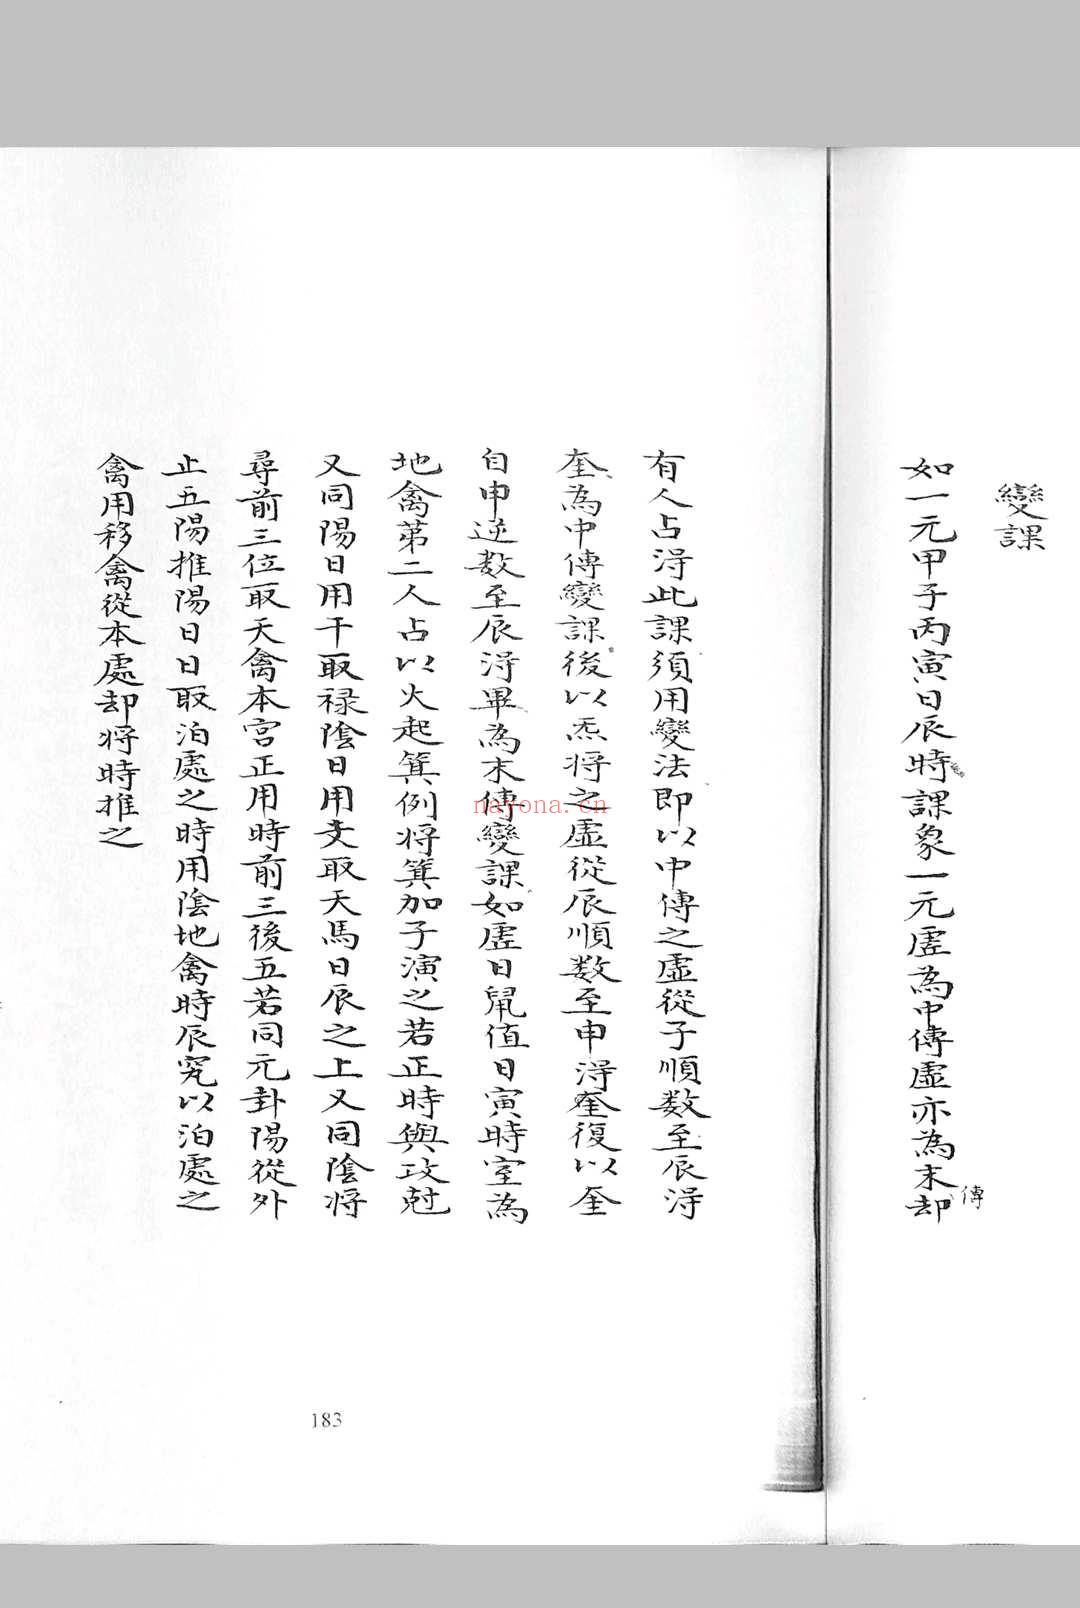 變課
如一元甲子丙寅日辰時課象一元虛為中傳虛亦為末却
傳
有人占淂此課須用變法即以中傳之虛從子順数至辰淂
奎為中傳變課後以炁将之虛從辰順数至申淂奎復以奎
自申逆数至辰淂畢為末傳變課如虛日鼠值日寅時室為
地禽第二人占以火起箕例将箕加子演之若正時與攻尅
又同陽日用干取禄陰日用支取天馬日辰之上又同陰将
尋前三位取天禽本宮正用時前三後五若同元卦陽從外
止五陽推陽日日取泊處之時用陰地禽時辰究以泊處之
禽用移禽從本處却将時推之
nayona.cn
183